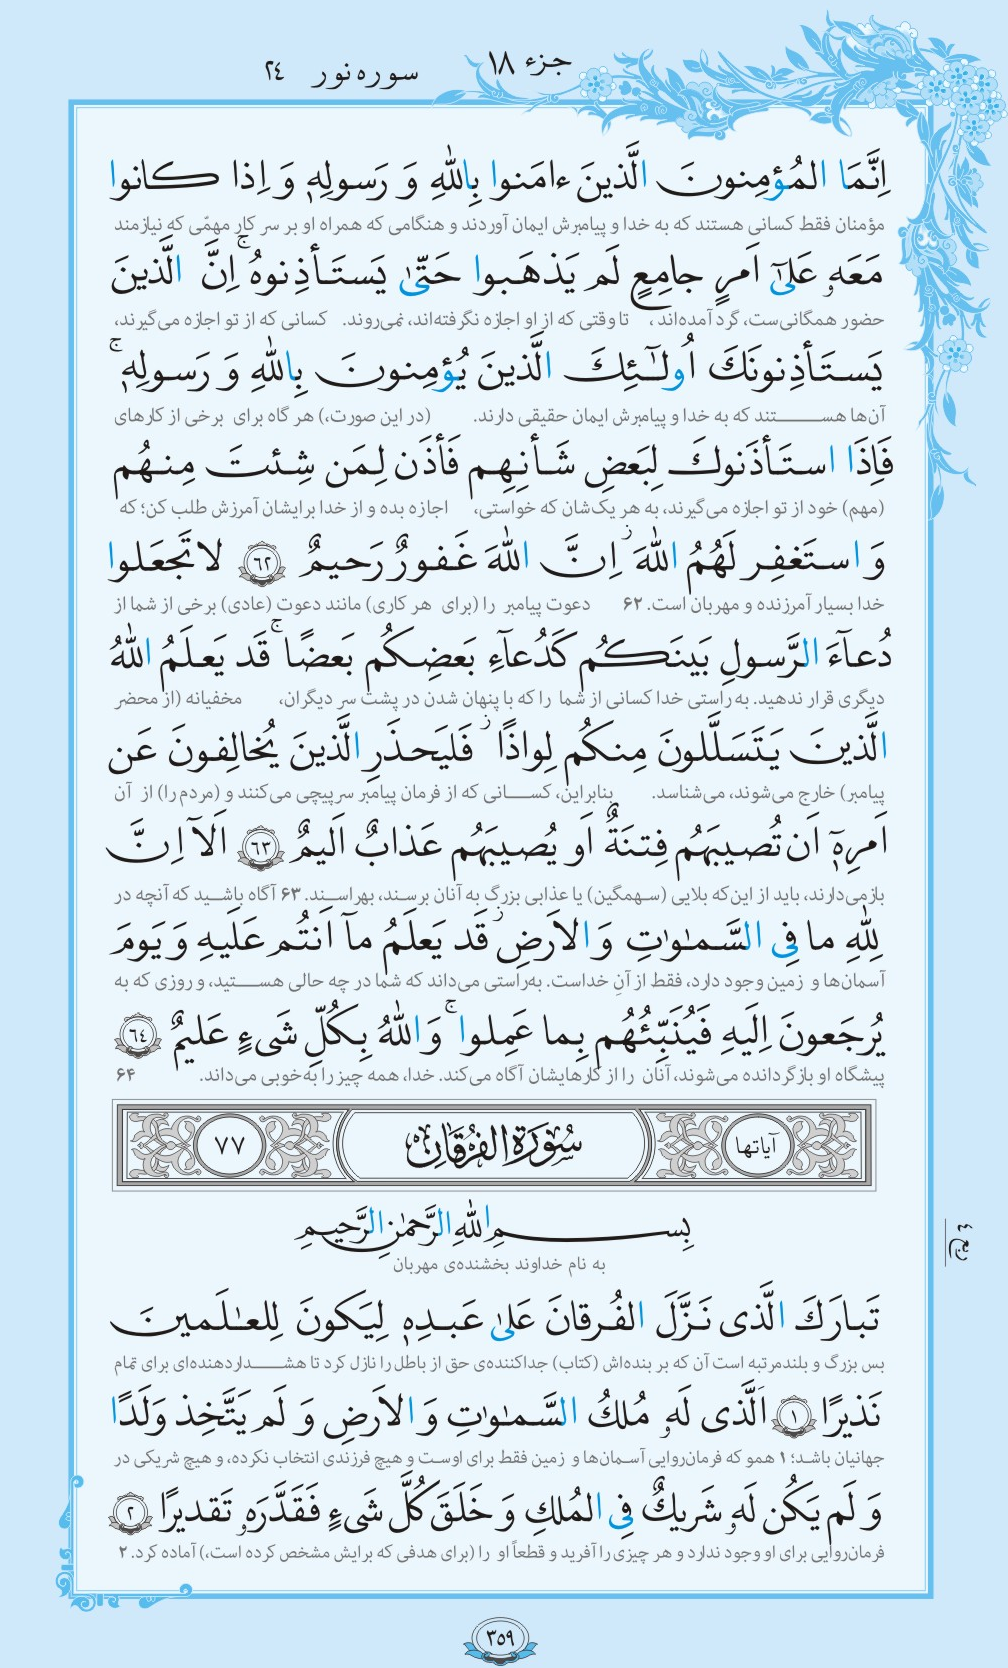 جزء ۱۸
سوره نور ۲٤
اِنَّمَا المُؤمِنونَ الَّذینَ ءامَنوا بِاللهِ وَ رَسولِهٖ وَ اِذا کانوا
مؤمنان فقط کسانی هستند که به خدا و پیامبرش ایمان آوردند و هنگامی که همراه او بر سر کار مهمّی که نیازمند
مَعَهٗ عَلیٰٓ اَمرٍ جامِعٍ لَم یَذهَبوا حَتّیٰ یَستَأذِنوهُ ۚ اِنَّ الَّذینَ
حضور همگانی‌ست، گرد آمده‌اند، تا وقتی که از او اجازه نگرفته‌اند، نمی‌روند. کسانی که از تو اجازه می‌گیرند،
یَستَأذِنونَكَ اُولٰٓئِكَ الَّذینَ یُؤمِنونَ بِاللهِ وَ رَسولِهٖ ۚ
آن‌ها هستند که به خدا و پیامبرش ایمان حقیقی دارند. (در این صورت،) هر گاه برای برخی از کارهای
فَاِذَا استَأذَنوكَ لِبَعضِ شَأنِهِم فَأذَن لِمَن شِئتَ مِنهُم
(مهم) خود از تو اجازه می‌گیرند، به هر یک‌شان که خواستی، اجازه بده و از خدا برایشان آمرزش طلب کن؛ که
وَ استَغفِر لَهُمُ اللهَ ؗ اِنَّ اللهَ غَفورٌ رَحیمٌ ﴿٦٢﴾ لا تَجعَلوا
خدا بسیار آمرزنده و مهربان است. ۶۲ دعوت پیامبر را (برای هر کاری) مانند دعوت (عادی) برخی از شما از
دُعآءَ الرَّسولِ بَینَکُم کَدُعآءِ بَعضِکُم بَعضًا ۚ قَد یَعلَمُ اللهُ
دیگری قرار ندهید. به‌راستی خدا کسانی از شما را که با پنهان شدن در پشت سر دیگران، مخفیانه (از محضر
الَّذینَ یَتَسَلَّلونَ مِنکُم لِواذًا ؗ فَلیَحذَرِ الَّذینَ یُخالِفونَ عَن
پیامبر) خارج می‌شوند، می‌شناسد. بنابراین، کسانی که از فرمان پیامبر سرپیچی می‌کنند و (مردم را) از آن
اَمرِهٖٓ اَن تُصیبَهُم فِتنَةٌ اَو یُصیبَهُم عَذابٌ اَلیمٌ ﴿٦٣﴾ اَلآ اِنَّ
بازمی‌دارند، باید از این‌که بلایی (سهمگین) یا عذابی بزرگ به آنان برسند، بهراسند. ۶۳ آگاه باشید که آنچه در
لِلّٰهِ ما فِی السَّمٰوٰتِ وَ الاَرضِ ؗ قَد یَعلَمُ مآ اَنتُم عَلَیهِ وَ یَومَ
آسمان‌ها و زمین وجود دارد، فقط از آنِ خداست. به‌راستی می‌داند که شما در چه حالی هستید، و روزی که به
یُرجَعونَ اِلَیهِ فَیُنَبِّئُهُم بِما عَمِلوا ۚ وَ اللهُ بِکُلِّ شَیءٍ عَلیمٌ ﴿٦٤﴾
پیشگاه او بازگردانده می‌شوند، آنان را از کارهایشان آگاه می‌کند. خدا، همه چیز را به‌خوبی می‌داند. ۶۴
آیاتها سُورَةُ الفُرقَانِ ٧٧
بِسمِ اللهِ الرَّحمٰنِ الرَّحیمِ
به نام خداوند بخشنده‌ی مهربان
تَبارَكَ الَّذی نَزَّلَ الفُرقانَ عَلیٰ عَبدِهٖ لِیَکونَ لِلعٰلَمینَ
بس بزرگ و بلندمرتبه است آن که بر بنده‌اش (کتاب) جداکننده‌ی حق از باطل را نازل کرد تا هشداردهنده‌ای برای تمام
نَذیرًا ﴿١﴾ اَلَّذی لَهٗ مُلكُ السَّمٰوٰتِ وَ الاَرضِ وَ لَم یَتَّخِذ وَلَدًا
جهانیان باشد؛ ۱ همو که فرمان‌روایی آسمان‌ها و زمین فقط برای اوست و هیچ فرزندی انتخاب نکرده، و هیچ شریکی در
وَ لَم یَکُن لَهٗ شَریكٌ فِی المُلكِ وَ خَلَقَ کُلَّ شَیءٍ فَقَدَّرَهٗ تَقدیرًا ﴿٢﴾
فرمان‌روایی برای او وجود ندارد و هر چیزی را آفرید و قطعاً او را (برای هدفی که برایش مشخص کرده است،) آماده کرد. ۲
۳۵۹